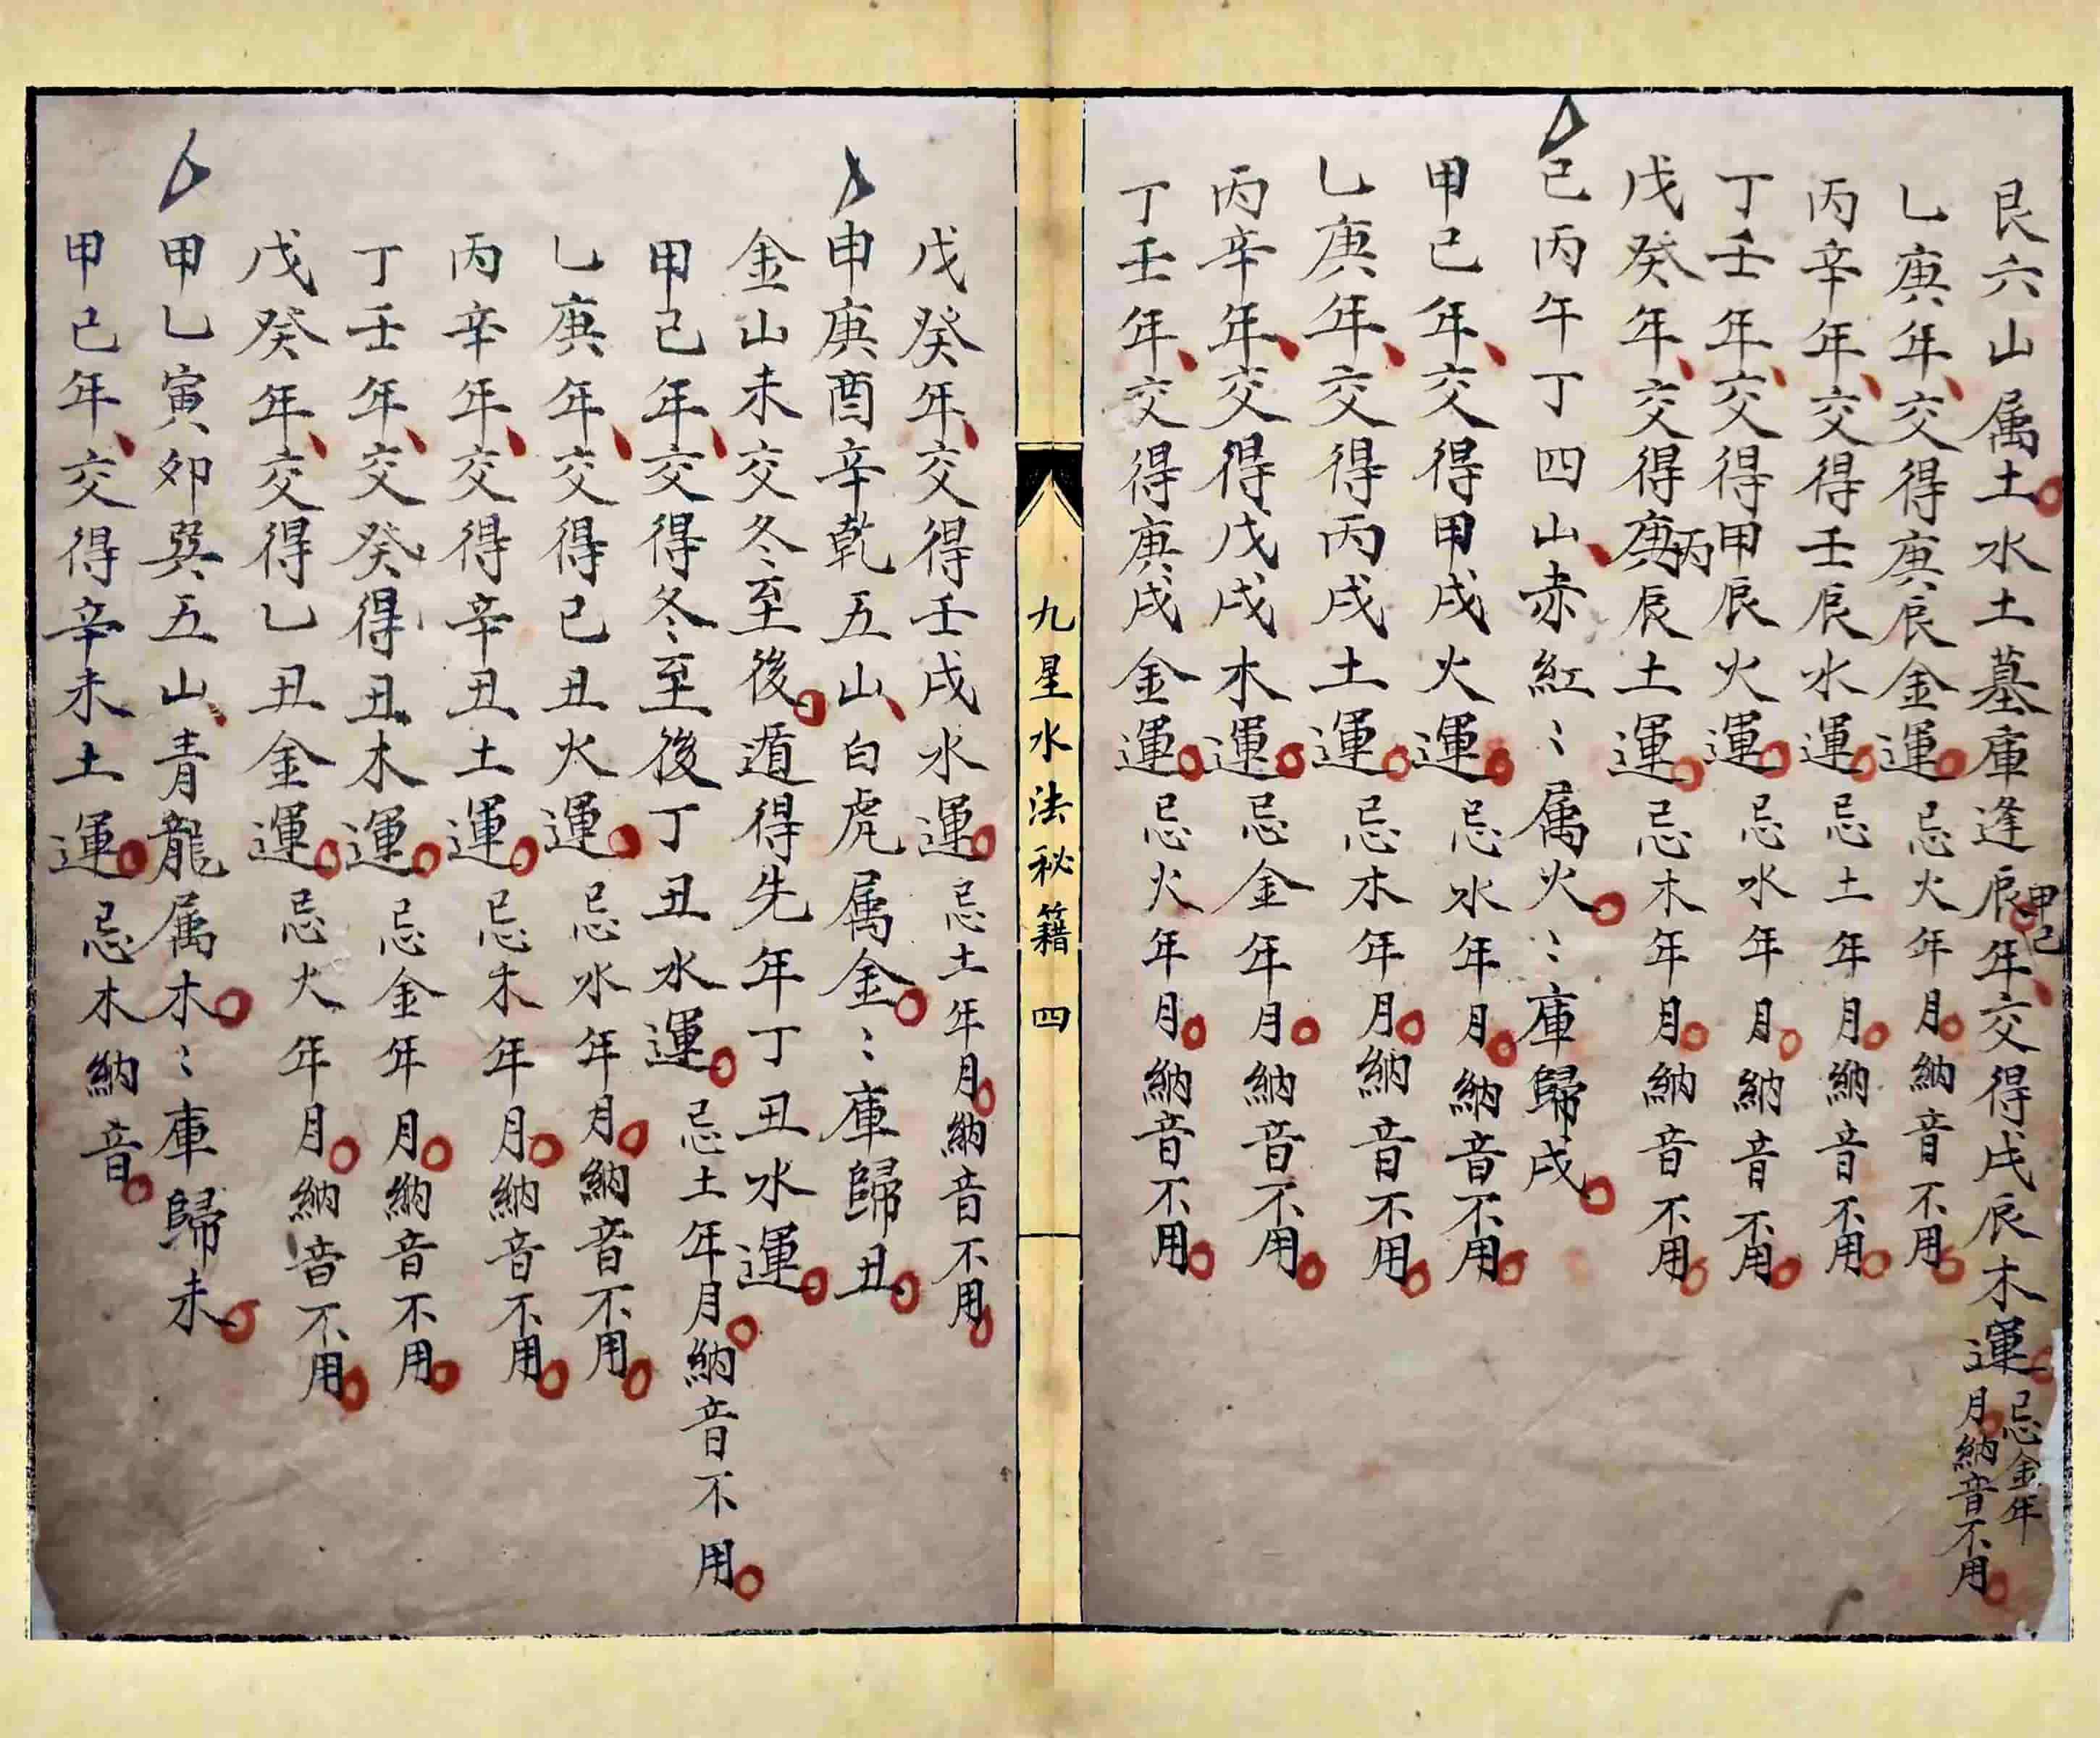 艮六山属土水土墓庫逢辰甲己年交得戊辰木運忌金年月納音不用
乙庚年交得庚辰金運忌火年月納音不用
丙辛年交得壬辰水運忌土年月納音不用
丁壬年交得甲辰火運忌水年月納音不用
戊癸年交得庚丙辰土運忌木年月納音不用
巳丙午丁四山赤紅〻属火〻庫歸戌
甲己年交得甲戌火運忌水年月納音不用
乙庚年交得丙戌土運忌木年月納音不用
丙辛年交得戊戌木運忌金年月納音不用
丁壬年交得庚戌金運忌火年月納音不用
九星水法秘籍 四
戊癸年交得壬戌水運忌土年月納音不用
申庚酉辛乾五山白虎属金〻庫歸丑
金山未交冬至後遁得先年丁丑水運
甲己年交得冬至後丁丑水運忌土年月納音不用
乙庚年交得己丑火運忌水年月納音不用
丙辛年交得辛丑土運忌木年月納音不用
丁壬年交癸得丑木運忌金年月納音不用
戊癸年交得乙丑金運忌火年月納音不用
甲乙寅卯巽五山青龍属木〻庫歸未
甲己年交得辛未土運忌木納音